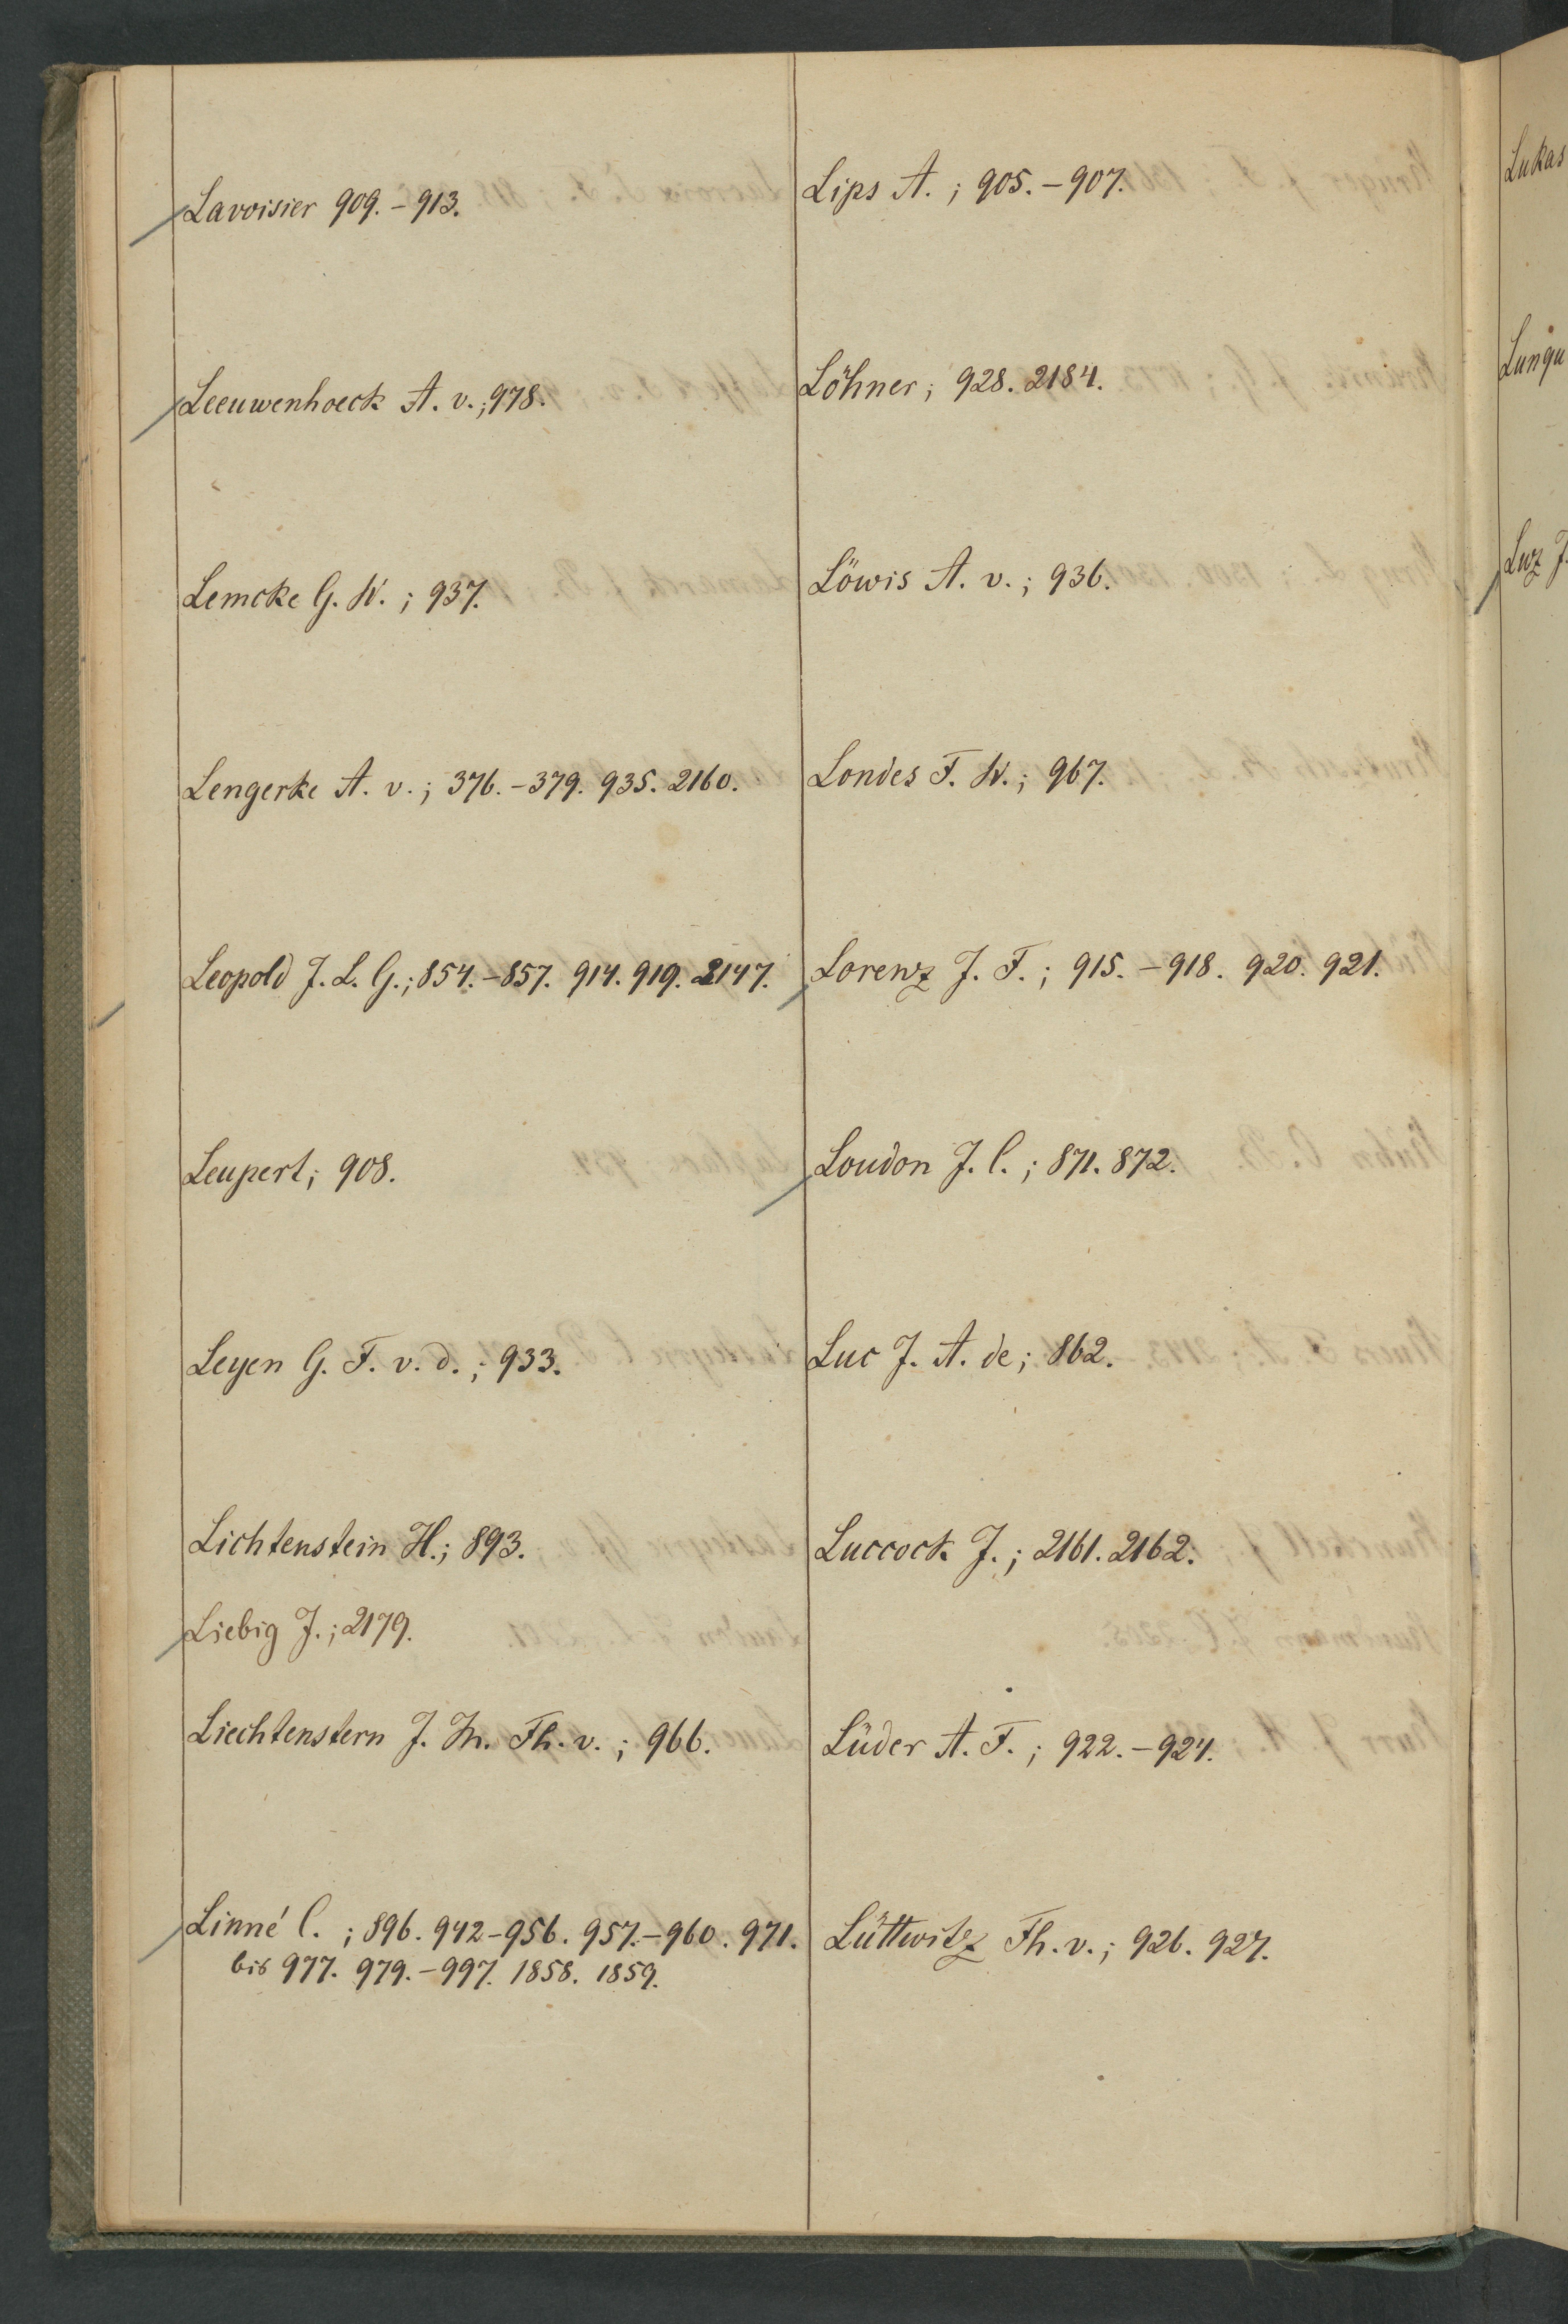 Lavoisier 909.-913.
Leeuwenhoeck A. v.; 978.
Lemcke G. W.; 937.
Lengerke A. v.; 376.-379. 935. 2160.
Leopold J. L. G.; 854.-857. 914. 919. 2147.
Leupert; 908.
Leyen G. F. v. d.; 933.
Lichtenstein H.; 893.
Liebig J.; 2179.
Liechtenstern J. M. Fh. v.; 966.
Linné C.; 896. 942-956. 957.-960. 971.
bis 977. 979.-997. 1858. 1859.
Lips A.; 905.-907.
Löhner; 928. 2184.
Löwis A. v.; 936.
Londes F. W.; 967.
Lorenz J. F.; 915.-918. 920. 921.
Loudon J. C.; 871. 872.
Luc J. A. de; 862.
Luccock J.; 2161. 2162.
Lüder A. F.; 922.-924.
Lüttwitz Fh. v.; 926. 927.
Lukas
Lungu
Luz J.